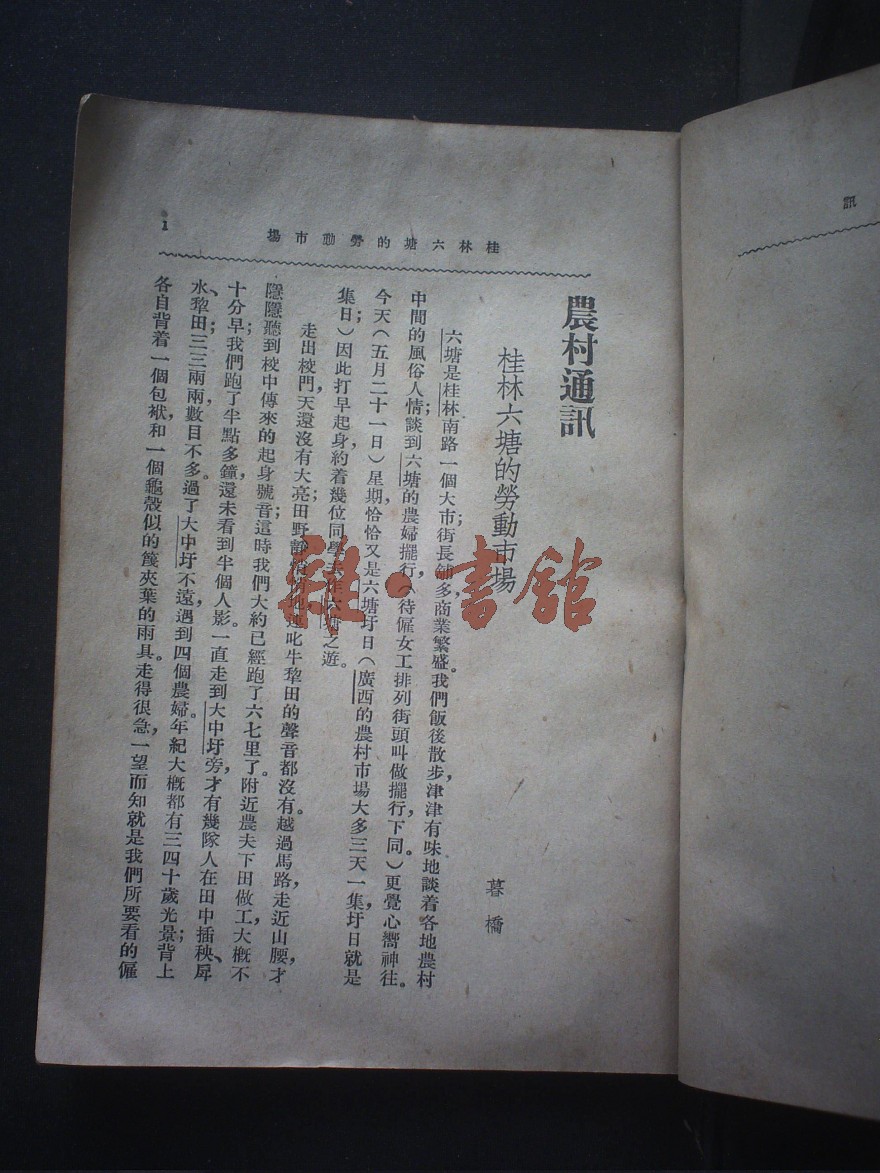 桂林六塘的勞動市場
1
農村通訊
桂林六塘的勞動市場
暮橋
六塘是桂林南路一個大市街長舖多商業繁盛。我們飯後散步，津津有味地談着各地農村
中間的風俗人情；談到六塘的農婦擺行，（待僱女工排列街頭叫做擺行，下同。）更覺心嚮神往。
今天（五月二十一日）星期恰恰又是六塘圩日（廣西的農村市場大多三天一集，圩日就是
集日；）因此打早起身，約着幾位同學去作六塘之遊。
走出校門，天還沒有大亮；田野靜悄悄地連叱牛犂田的聲音都沒有。越過馬路走近山腰，才
隱隱聽到校中傳來的起身號音；這時我們大約已經跑了六七里了。附近農夫下田做工，大概不
十分早；我們跑了半點多鐘，還未看到半個人影。一直走到大中圩旁，才有幾隊人在田中插秧、戽
水、犂田；三三兩兩數目不多。過了大中圩不遠，遇到四個農婦年紀大概都有三四十歲光景；背上
各自背着一個包袱，和一個龜殼似的籛夾葉的雨具。走得很急，一望而知就是我們所要看的僱
訊
雜·書館